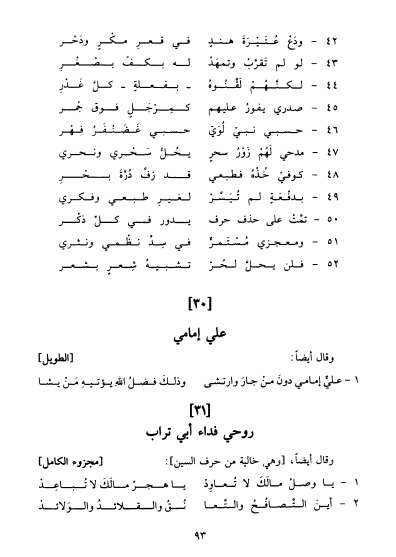 ٤٢ - ودَعْ عُنَيْزَةَ هندٍ في قعرِ مكْرٍ ودَحْرِ
٤٣ - لو لم تَقرَّبْ وتمهَدْ له بكفْ بصُغْرِ
٤٤ - لكنَّهُمْ لقَّنُوهُ - بفعلةٍ - كلَّ غَدْرِ
٤٥ - صدري يفورُ عليهم كمِرْجَلٍ فوق جمْرِ
٤٦ - حسبي نبيُّ لُؤَيٍّ حسبي غَضَنْفَرُ فِهْرِ
٤٧ - مدحي لَهُمْ زَوْرُ سحرٍ يحُلُّ سَحْري ونحري
٤٨ - كوفيُّ خُذْهُ فطبعي قد زفَّ دُرَّةَ بحْرِ
٤٩ - بدفْعَةٍ لم تُيَسَّرْ لغيرِ طبعي وفكري
٥٠ - تمَّتْ على حذف حرف يدور في كلِّ ذكْرِ
٥١ - ومعجزي مُسْتَمِرٌّ في سِدِّ نظْمي ونثري
٥٢ - فلن يحلَّ لحُرٍّ تشبيهُ شِعرٍ بشعرِ
[٣٠]
علي إمامي
وقال أيضاً: [الطويل]
١ - عليٌّ إمامي دونَ مَنْ جارَ وارتشى وذلكَ فضلُ اللهِ يؤتيهِ مَنْ يشا
[٣١]
روحي فداء أبي تراب
وقال أيضاً، [وهي خالية من حرف السين]: [مجزوء الكامل]
١ - يا وصلُ مالَكَ لا تُعاوِدْ يا هجرُ مالَكَ لا تُباعِدْ
٢ - أينَ التَّصافُحُ والتَّعا نُقُ والقلائدُ والولائدْ
٩٣